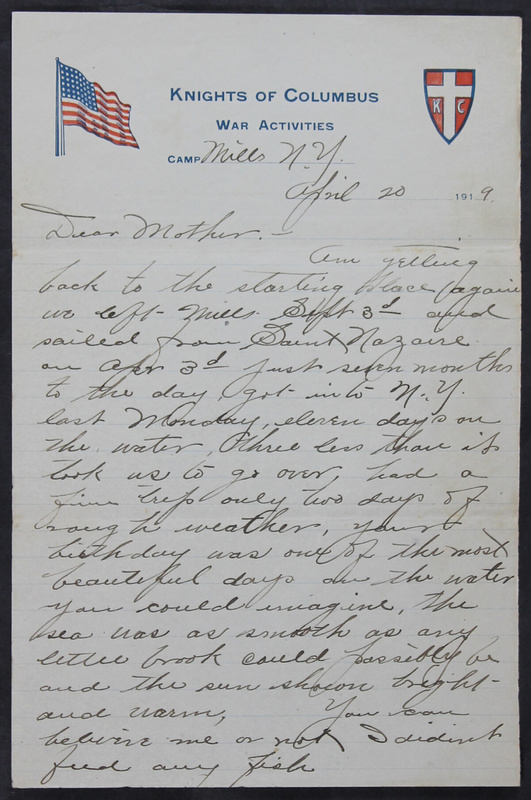 KNIGHTS OF COLUMBUS
K C
WAR ACTIVITIES
CAMP Mills N.Y.
April 20 1919.
Dear Mother. —
Am getting
back to the starting place again
we left Mills Sept 3d and
sailed from Saint Nazaire
on Apr 3d just seven months
to the day, got into N.Y.
last Monday, eleven days on
the water, three less than it
took us to go over, had a
fine trip only two days of
rough weather, your
birthday was one of the most
beautiful days on the water
you could imagine, the
sea was as smooth as any
little brook could possibly be
and the sun shown bright
and warm, You can
believe me or not I didint
feed any fish